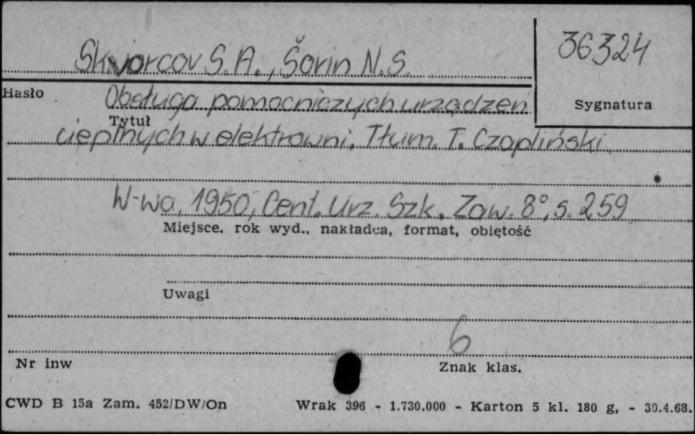 Skvorcov S.A., Šorin N.S.
36324
Hasło
Sygnatura
Obsługa pomocniczych urządzeń
Tytuł
cieplnych w elektrowni. Tłum. T. Czapliński.
W-wa, 1950, Cent. Urz. Szk. Zaw. 8°, s. 259
Miejsce, rok wyd., nakładca, format, objętość
Uwagi
6
Nr inw
Znak klas.
CWD B 15a Zam. 452/DW/On Wrak 396 - 1.730.000 - Karton 5 kl. 180 g, - 30.4.68.